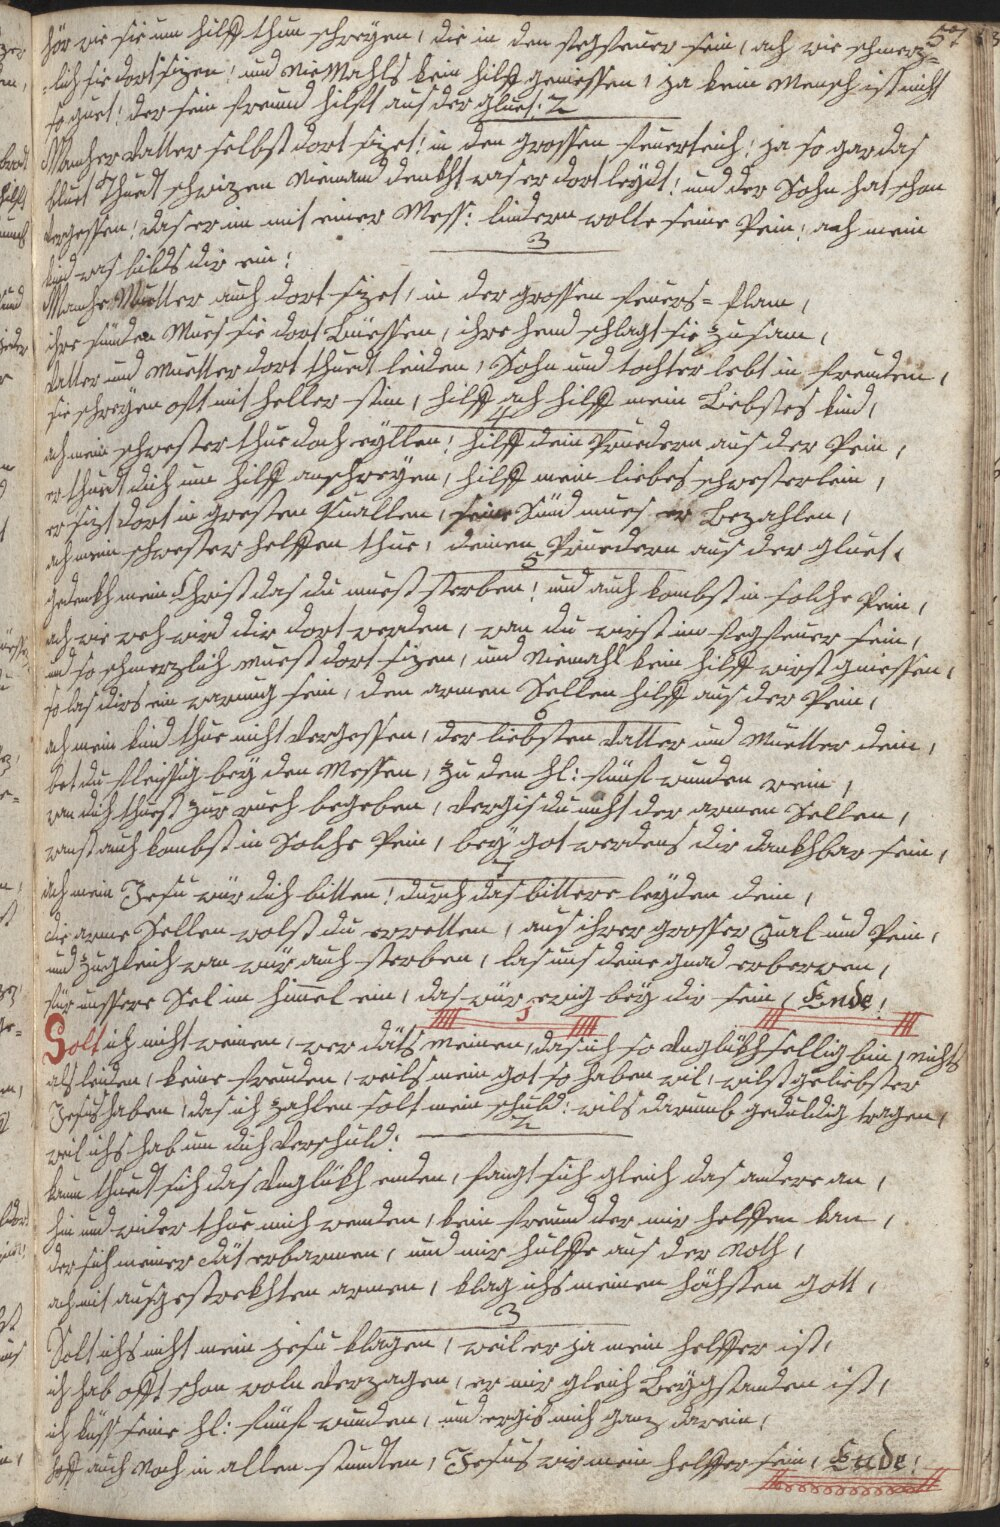 57
hör wie sie um hilff thun schreÿen, die in den fegfeuer sein, ach wie schmerz=
=lich sie dort sizen! und Niemahls kein hilff geniessen, ja kein Mensch ist nicht
so guet! der sein freund hilfft aus der gluet: 2
Mancher Vatter selbst dort sizet! in den grossen feuerteich! ja so gar das
bluet thuedt schwizen Niemand denkht was er dort leÿdt! und der Sohn hat schon
Vergessen! das er im mit einer Mess: lindern wolte seine Pein! ach mein
kind was bilds dir ein!
3
Manche Muetter auch dort sizet, in der grossen feuers=flam,
ihre sünden Mues sie dort büessen, ihre hend schlagt sie zusam,
Vatter und Muetter dort thuedt leiden, Sohn und tochter lebt in freuden,
sie schreÿen offt mit heller stim, hilff ach hilff mein Liebstes kind,
4
ach mein schwester thue doch eÿllen! hilff dein Pruedern aus der Pein,
er thuedt dich um hilff anschreÿen, hilff mein liebes schwesterlein,
er sizt dort in gresten Quallen, seine Sünd mues er Bezahlen,
ach mein schwester helffen thue, deinen Pruedern aus der gluet,
5
gedenkh mein Christ das du muest sterben! und auch kombst in solche Pein,
ach wie weh wird dir dort werden, wan du wirst im fegfeuer sein,
und so schmerzlich muest dort sizen, und Niemahl kein hilff wirst gniessen,
so las dirs ein warnug sein, den armen Sellen hilff aus der Pein,
6
ach mein kind thue nicht Vergessen, der liebsten Vatter und Muetter dein,
bet du fleissig beÿ den Messen, zu den hl: fünf wunden rein,
wan dich thuest zur rueh begeben, Vergis du nicht der armen Sellen,
wanst auch kombst in Solche Pein, beÿ got werdens dir dankhbar sein,
7
ach mein Jesu wür dich bitten! durch das bittere leÿden dein,
die arme Sellen wolst du erretten, aus ihrer grosser Qual und Pein,
und zugleich wan wür auch sterben, las uns deine gnad erberwen,
für unssere Sel im himel ein, das wür ewig beÿ dir sein, Ende!
1
Solt ich nicht weinen, wer däts meinen, das ich so Unglükhsellig bin, nichts
als leiden, keine freuden, weils mein got so haben wil, wilst geliebster
Jesus haben, das ich zahlen solt mein schuld: wils darumb geduldig tragen,
weil ichs hab um dich Verschuld:
2
kaum thuedt sich das Unglükh enden, fangt sich gleich das andere an,
hin und wider thue mich wenden, kein freund der mir helffen kan,
der sich meiner dät erbarmen, und mir hülffe aus der Noth,
ach mit ausgestrekhten armen, klag ichs meinen höhsten gott,
3
Solt ichs nicht mein jesu klagen, weil er ja mein helffer ist,
ich hab offt schon woln Verzagen, er mir gleich Beÿgstanden ist,
ich küss seine hl: fünf wunden, und ergib mich ganz darein,
hoff auch Noch in allen stundten, Jesus wir mein helffer sein, Ende!